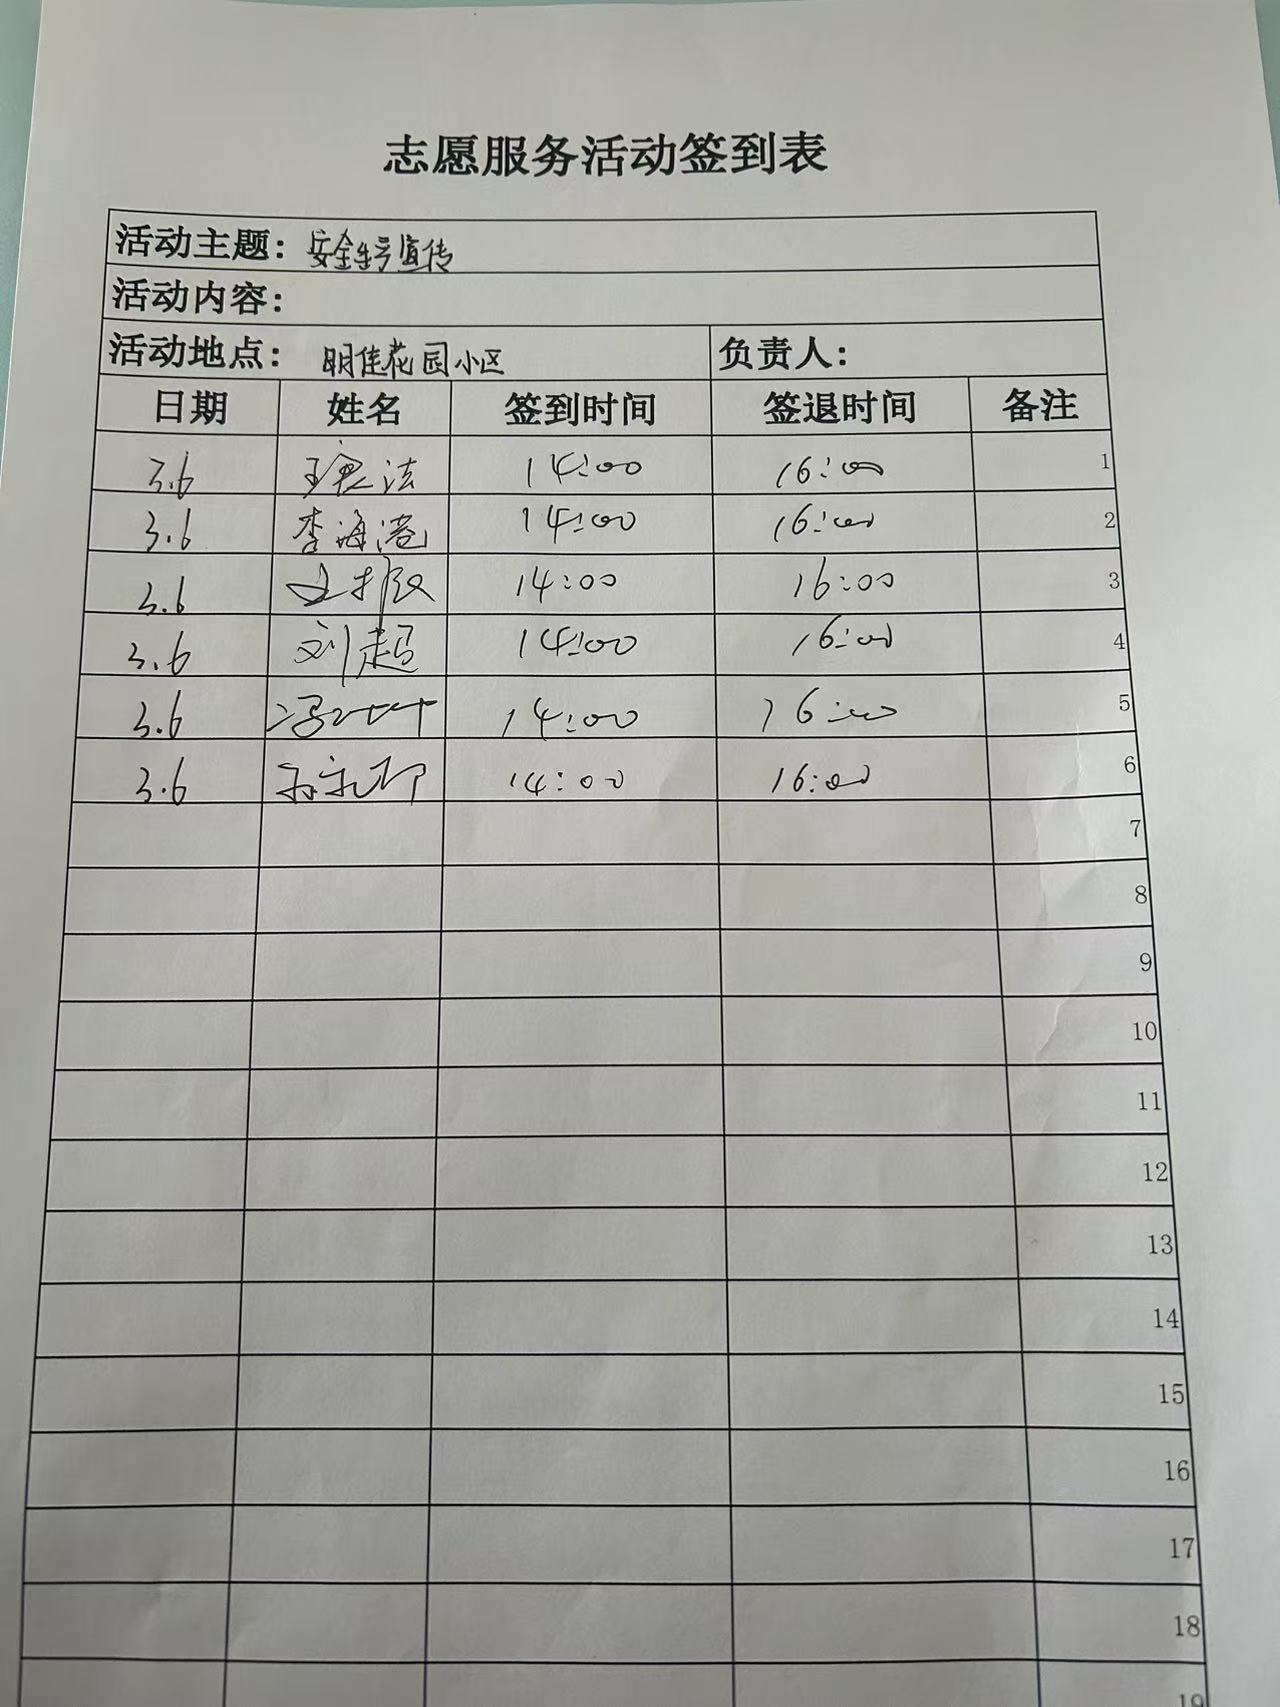 志愿服务活动签到表
活动主题: 安全宣传
活动内容:
活动地点: 明佳花园小区 负责人:
日期 姓名 签到时间 签退时间 备注
3.6 14:00 16:00 1
3.6 李海港 14:00 16:00 2
3.6 14:00 16:00 3
3.6 刘超 14:00 16:00 4
3.6 14:00 16:00 5
3.6 14:00 16:00 6
7
8
9
10
11
12
13
14
15
16
17
18
19